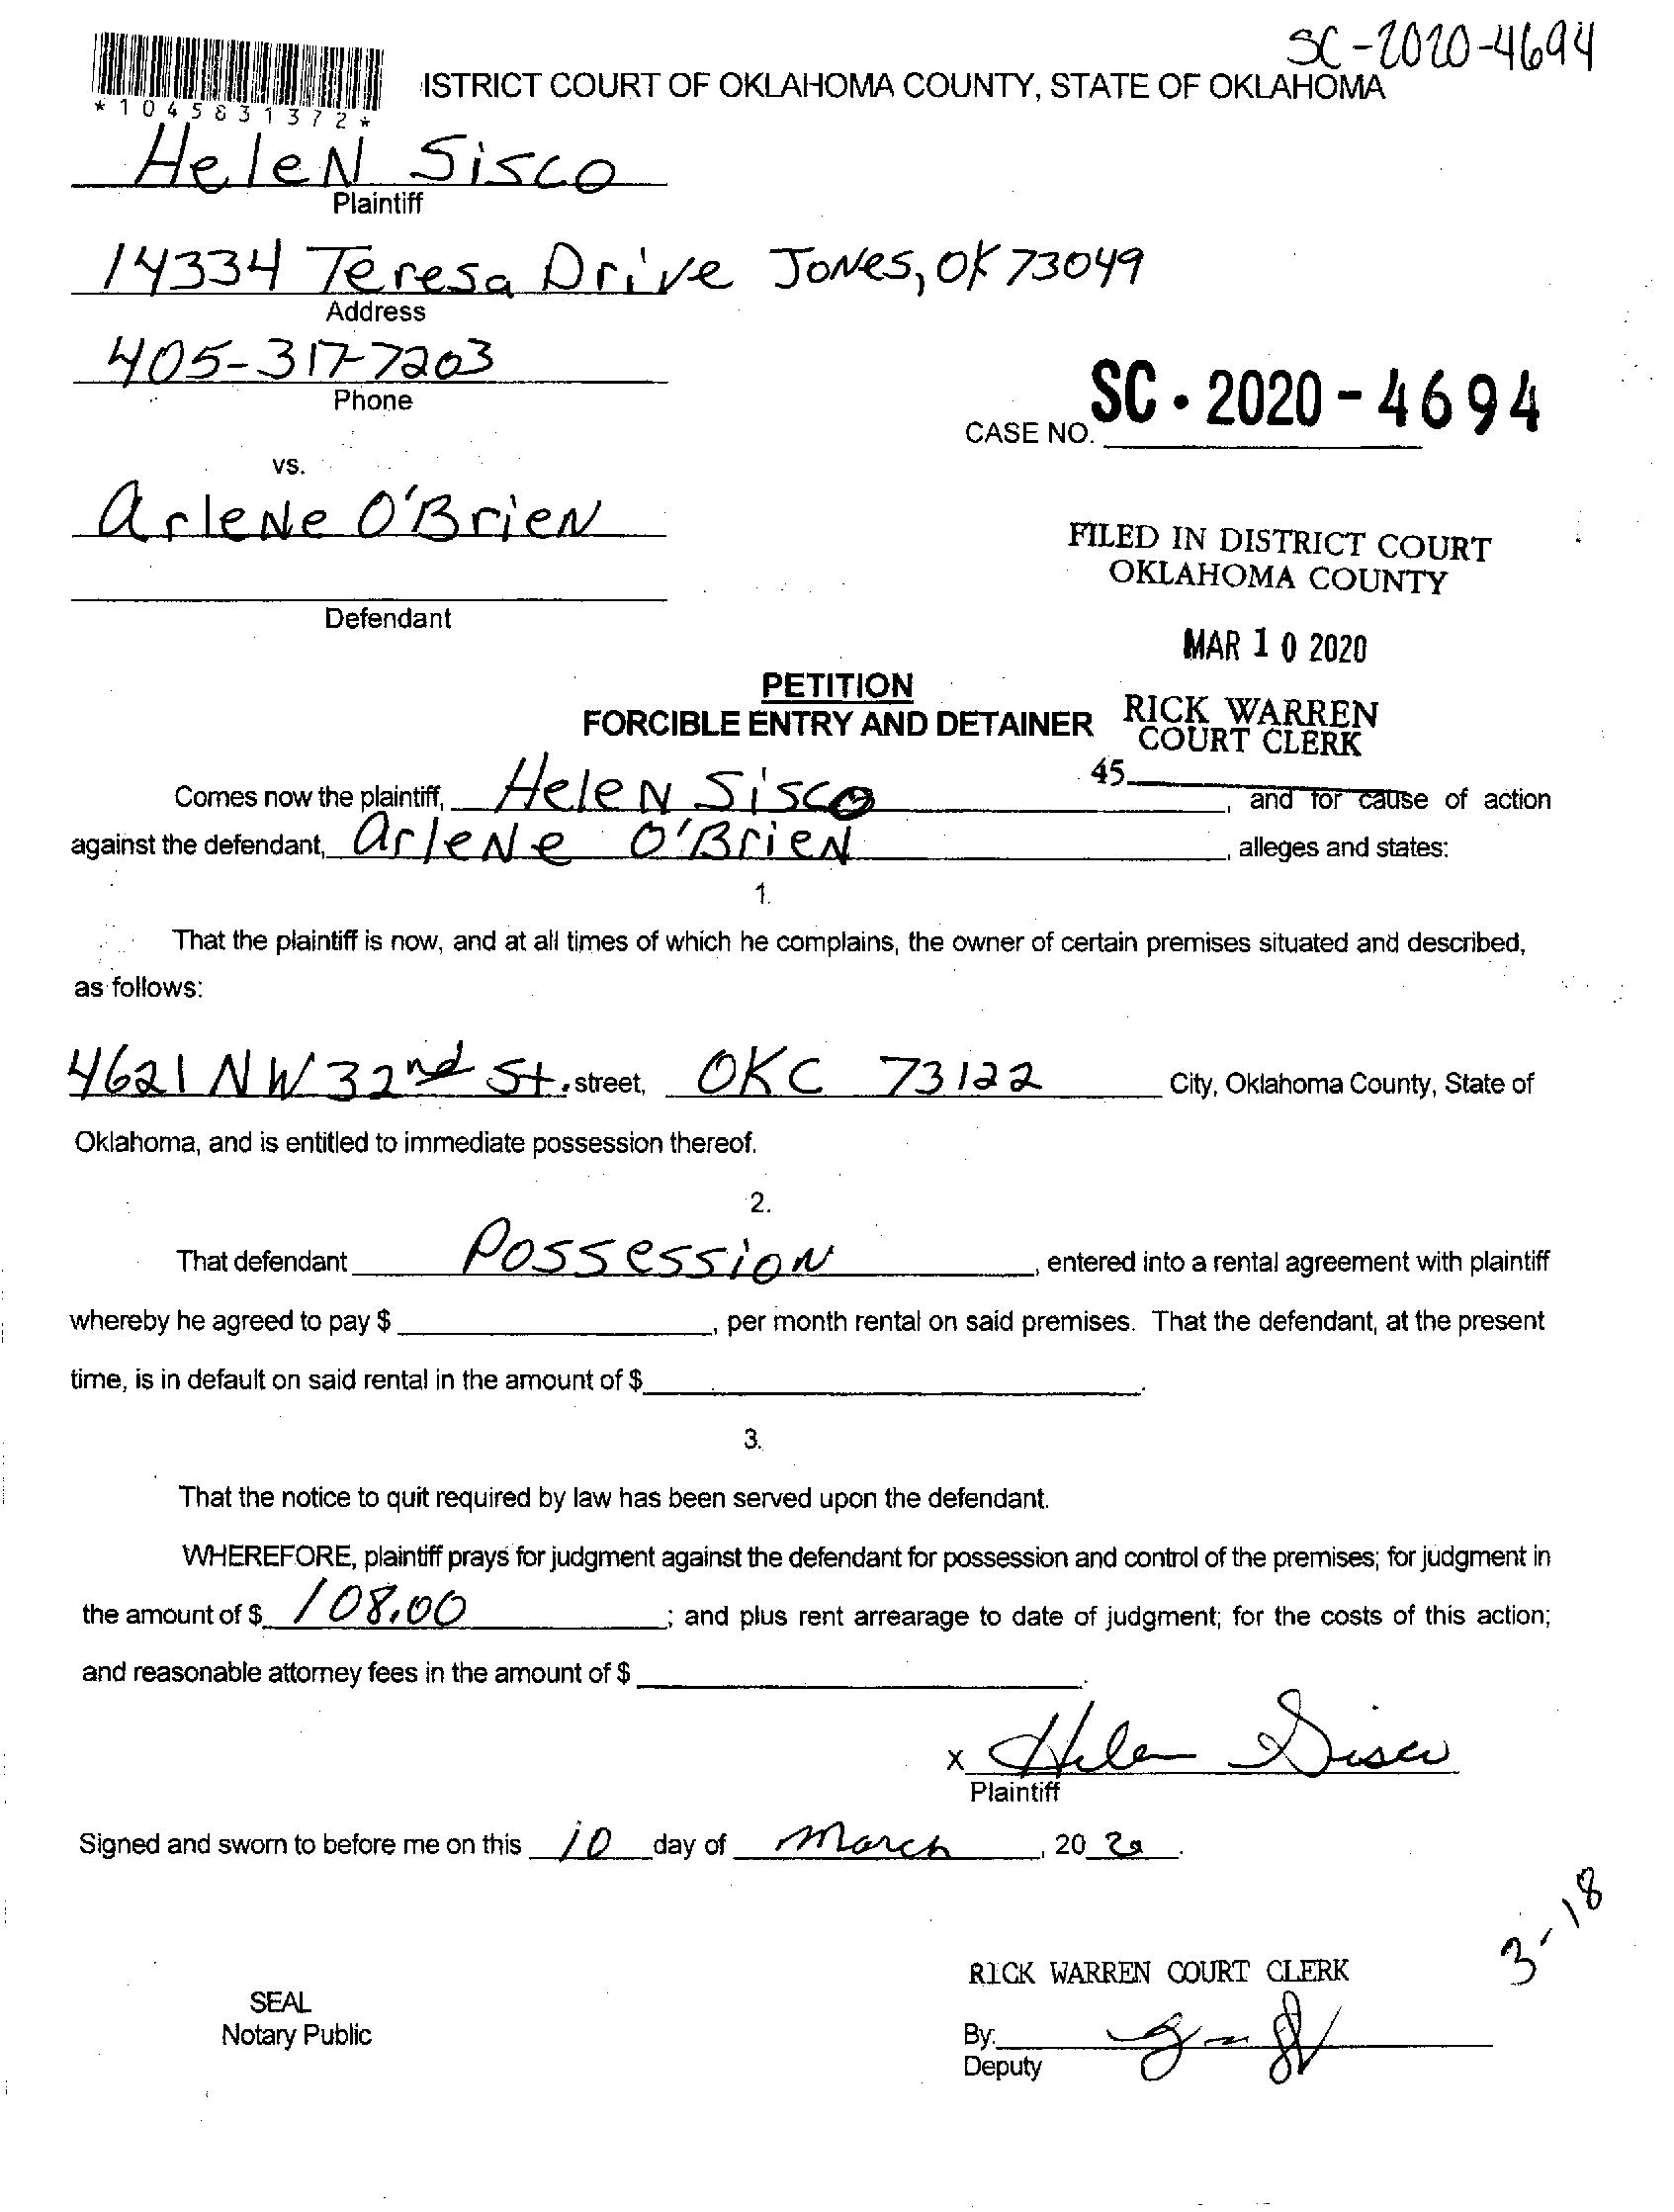 SC-2020-4694
ISTRICT COURT OF OKLAHOMA COUNTY, STATE OF OKLAHOMA
*1045831372*
HeleN Sisco
Plaintiff
14334 Teresa Drive JoNes, OK 73049
Address
405-317-7203
Phone
CASE NO. SC-2020-4694
vs.
ArleNe O'BrieN
FILED IN DISTRICT COURT
OKLAHOMA COUNTY
Defendant
MAR 10 2020
PETITION
FORCIBLE ENTRY AND DETAINER
RICK WARREN
COURT CLERK
45
Comes now the plaintiff, HeleN Sisco, and for cause of action
against the defendant, ArleNe O'BrieN, alleges and states:
1.
That the plaintiff is now, and at all times of which he complains, the owner of certain premises situated and described,
as follows:
4621 NW 32nd St. street, OKC 73122 City, Oklahoma County, State of
Oklahoma, and is entitled to immediate possession thereof.
2.
That defendant PossessioN, entered into a rental agreement with plaintiff
whereby he agreed to pay $ , per month rental on said premises. That the defendant, at the present
time, is in default on said rental in the amount of $ .
3.
That the notice to quit required by law has been served upon the defendant.
WHEREFORE, plaintiff prays for judgment against the defendant for possession and control of the premises; for judgment in
the amount of $ 108.00 ; and plus rent arrearage to date of judgment; for the costs of this action;
and reasonable attorney fees in the amount of $ .
x Helen Sisco
Plaintiff
Signed and sworn to before me on this 10 day of March, 20 20.
3-18
RICK WARREN COURT CLERK
SEAL
Notary Public
By:
Deputy